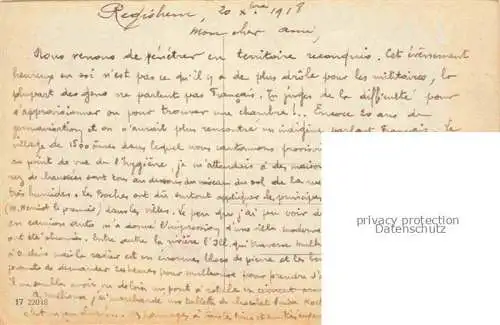 Regisheim, 20 Xbre 1918
Mon cher ami,
Nous venons de pénétrer en territoire reconquis. Cet évènement
heureux en soi n'est pas ce qu'il y a de plus drôle pour les militaires, la
plupart des gens ne parlent pas Français. Tu juges de la difficulté pour
s'approvisionner ou pour trouver une chambre!.. Encore 20 ans de
germanisation et on n'aurait plus rencontré un indigène parlant Français. Le
village de 1500 âmes dans lequel nous cantonnons provisoi
au point de vue de l'hygiène, je m'attendais à des maisons
rez de chaussées sont tous au dessous du niveau du sol de la rue
très humides. Les Boches ont dû surtout appliquer des principes
dans les villes. Le peu que j'ai pu voir de
en camions autos m'a donné l'impression d'une ville moderne
ont été abimées. Entre autre la rivière l'Ill qui traverse Mulh
mais le radier est en énormes blocs de pierre et les bo
de demander Mulhouse pour prendre d'
Il me semble avoir vu de loin un pont à
A Mulhouse, j'ai marchandé une tablette de chocolat
17 22018
privacy protection
watermark